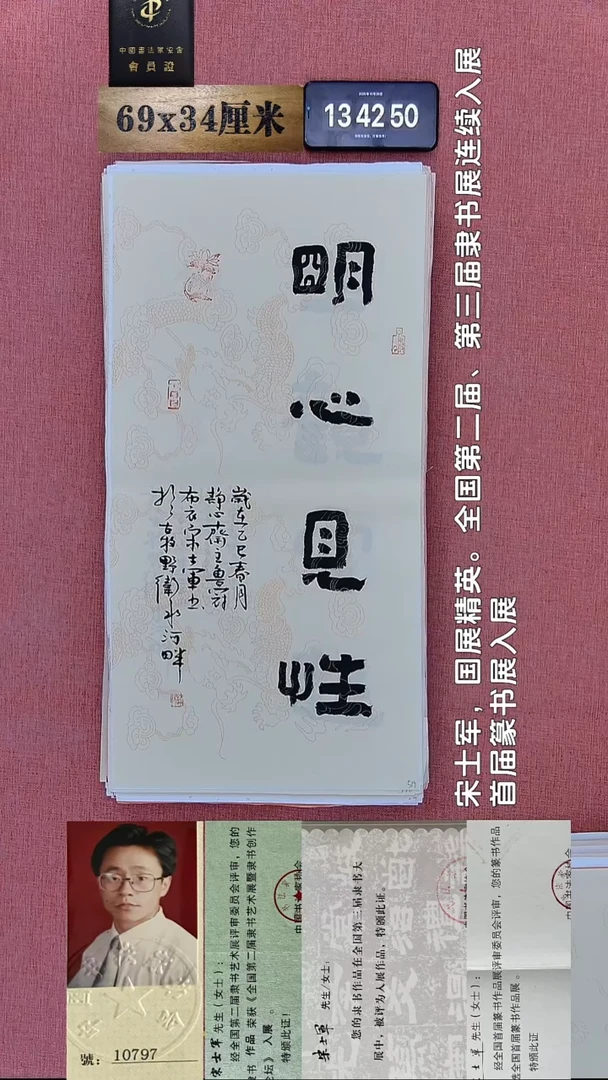 中国书法家协会
會員證
69x34厘米
13 42 50
明心見性
歲在乙巳春月
静心齋主魯冠
布衣宋士軍书
於古野衛水河畔
宋士军，国展精英。全国第二届、第三届隶书展连续入展
首届篆书展入展
号：10797
宋士军 先生（女士）：
经全国第二届隶书艺术展评审委员会评审，您的
隶书 作品 荣获《全国第二届隶书艺术展暨隶书创作
论坛》入展 。
特颁此证！
宋士军 先生/女士：
您的隶书作品在全国第三届隶书大
展中，被评为入展作品，特颁此证。
士军 先生（女士）：
经全国首届篆书作品展评审委员会评审，您的篆书作品
选全国首届篆书作品展 。
特颁此证